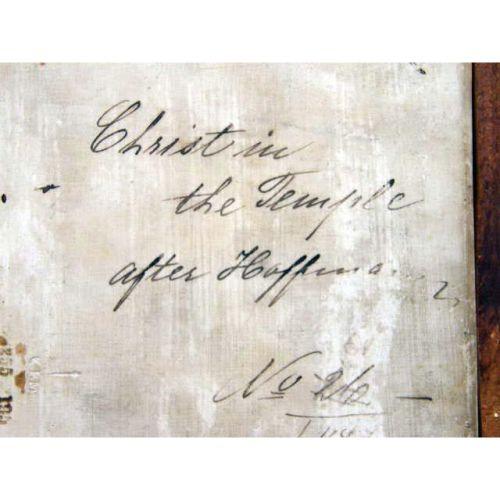 Christ in
the Temple
after Hoffman
No 26